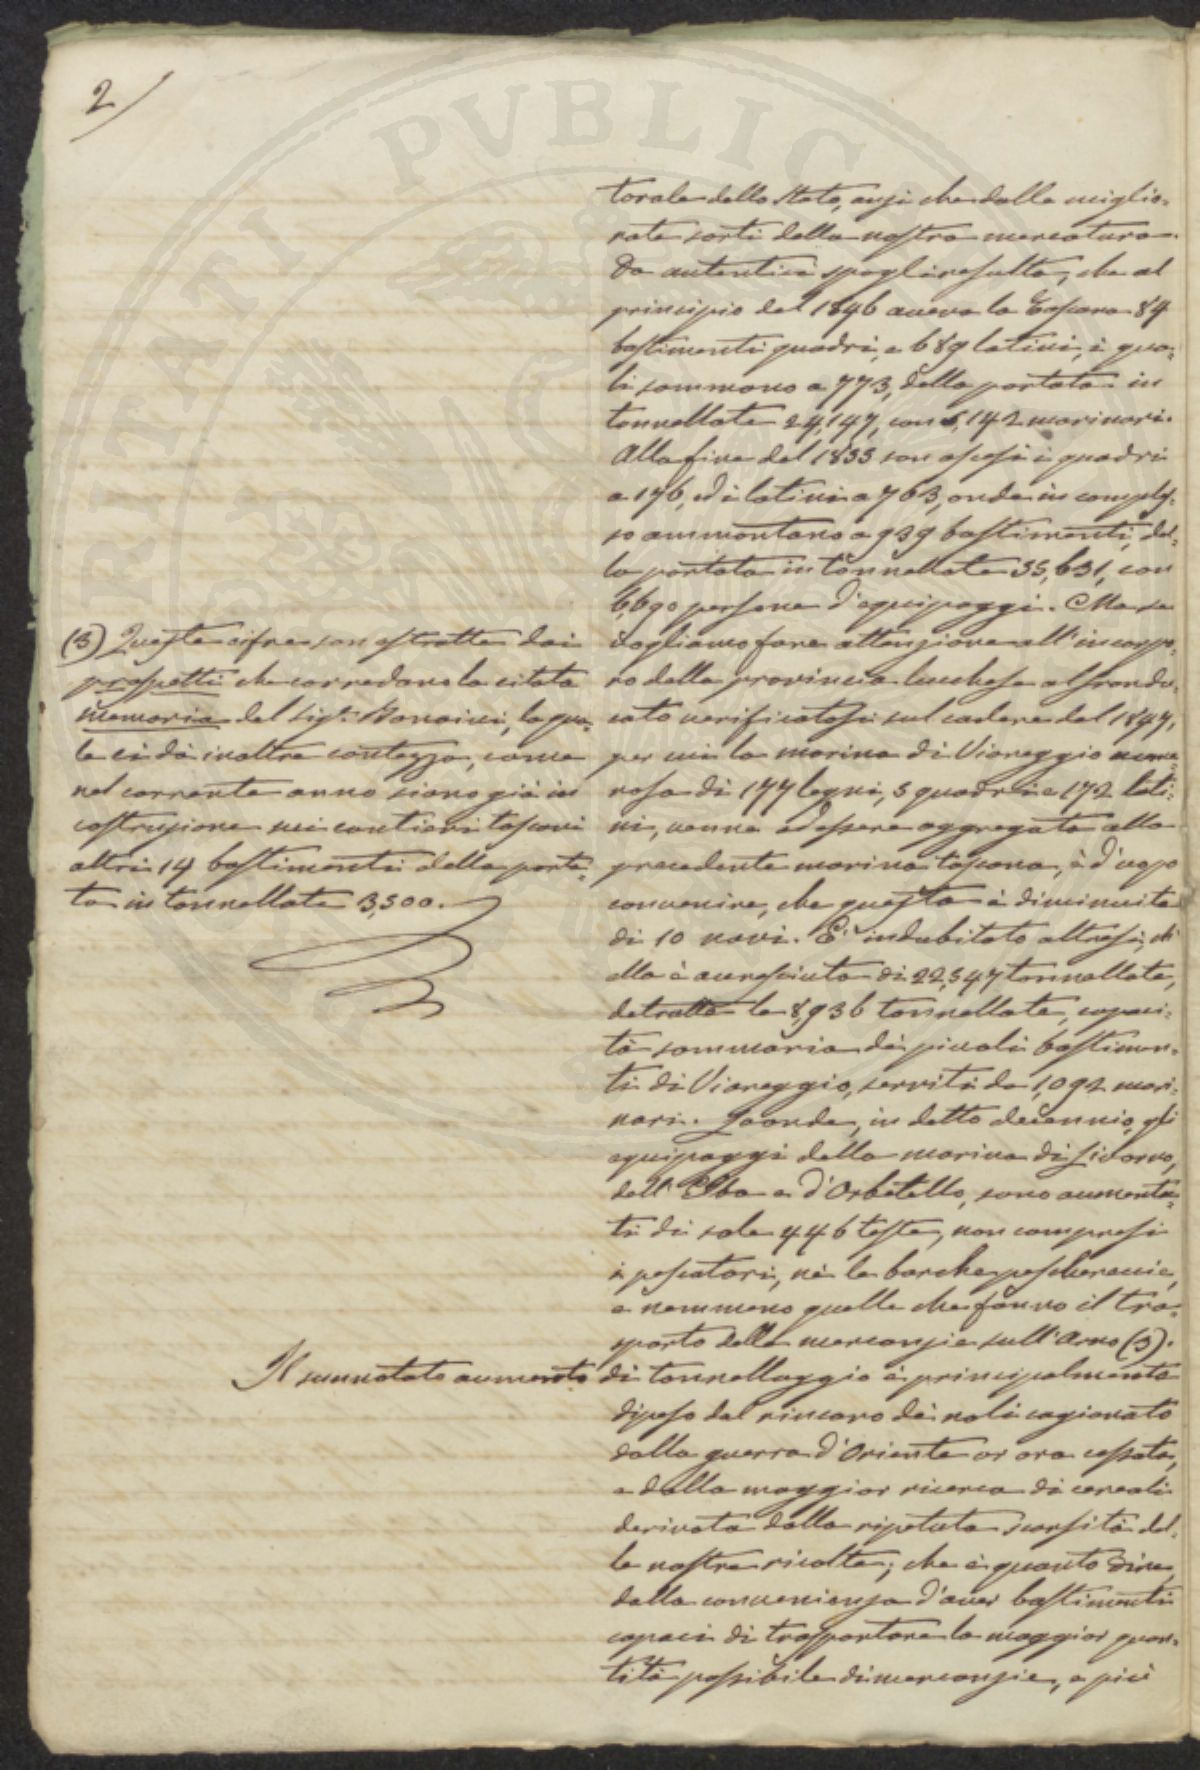 2/
torale dello Stato, anzi che dalle miglio-
rate sorti della nostra mercatura.
Da autentici spogli resulta, che al
principio del 1846 aveva la Toscana 84
bastimenti quadri, e 689 latini, i qua-
li sommano a 773, della portata in
tonnellate 24,147, con 5,142 marinari.
Alla fine del 1855 son ascesi i quadri
a 176, ed i latini a 763, onde in comples-
so ammontano a 939 bastimenti, del-
la portata in tonnellate 55,631, con
6,690 persone d'equipaggi. Ma se
vogliamo fare attenzione all'incorpo-
ro della provincia lucchese al Grandu-
cato verificatosi sul cadere del 1847,
per cui la marina di Viareggio nume-
rosa di 177 legni, 5 quadri e 172 lati-
ni, venne ad essere aggregata alla
precedente marina toscana, è d'uopo
convenire, che questa è diminuita
di 10 navi. E' indubitato altresì, ch'
ella è accresciuta di 22,547 tonnellate,
detratte le 8,936 tonnellate, capaci-
tà sommaria dei piccoli bastimen-
ti di Viareggio, serviti da 1,092 mari-
nari. Laonde, in detto decennio, gli
equipaggi della marina di Livorno,
dell'Elba e d'Orbetello, sono aumenta-
ti di sole 446 teste, non compresi
i pescatori, nè le barche pescherecce,
e nemmeno quelle che fanno il tra-
sporto delle mercanzie sull'Arno (3).
Il sunnotato aumento di tonnellaggio è principalmente
dipeso dal rincaro dei noli cagionato
dalla guerra d'Oriente or ora cessata,
e dalla maggior ricerca di cereali
derivata dalla ripetuta scarsità del-
le nostre ricolte; che è quanto dire,
dalla convenienza d'aver bastimenti
capaci di trasportare la maggior quan-
tità possibile di mercanzie, e più
(3) Queste cifre son estratte dai
prospetti che corredano la citata
memoria del Sig.r Bonaini, la qua-
le ci dà inoltre contezza, come
nel corrente anno siano già in
costruzione nei cantieri toscani
altri 14 bastimenti della porta-
ta in tonnellate 3,500.
RITATI PVBLIC